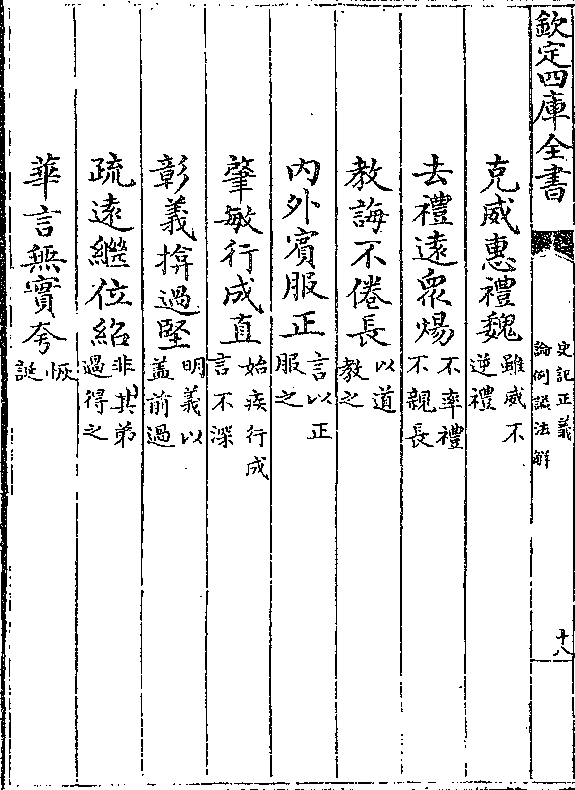 欽定四庫全書
史記正義
論例諡法解
十八
克威惠禮魏雖威不逆禮
去禮遠衆煬不率禮不親長
教誨不倦長以道教之
內外賓服正言以正服之
肇敏行成直始疾行成言不深
彰義揜過堅明義以蓋前過
疏遠繼位紹非其弟過得之
華言無實夸恢誕